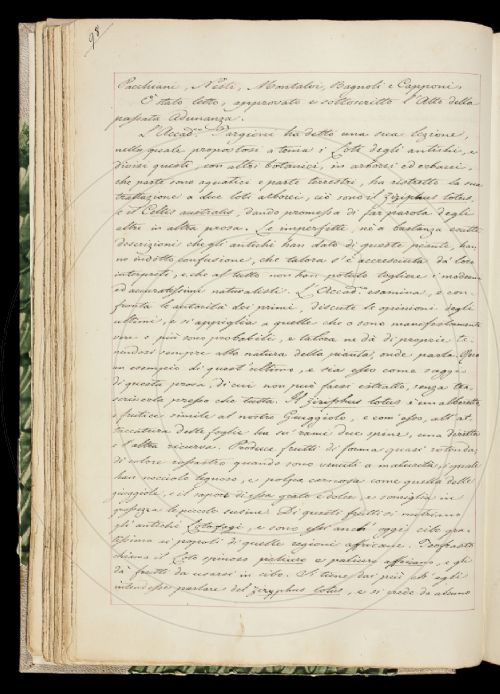 98
Pacchiani, Nesti, Montalvi, Bagnoli e Capponi.
È stato letto, approvato e sottoscritto l'Atto della
passata Adunanza.
L'Accad.co Targioni ha detto una sua lezione,
nella quale propostosi a tema i Loti degli antichi, e
divisi questi, con altri botanici, in arborei ed erbacei,
che parte sono aquatici e parte terrestri, ha ristretto la sua
trattazione a due loti arborei, ciò sono il Ziziphus lotus,
e il Celtis australis, dando promessa di far parola degli
altri in altra prosa. Le imperfette, nè a bastanza esatte
descrizioni che gli antichi han dato di queste piante, han-
no indotto confusione, che talora s'è accresciuta da' loro
interpreti, e che al tutto non han potuto togliere i moderni
ed accuratissimi naturalisti. L'Accad.co esamina, e con-
fronta le autorità dei primi, discute le opinioni degli
ultimi, e si appiglia a quelle che o sono manifestamente
vere o più sono probabili, e talora ne dà di proprie te-
nendosi sempre alla natura della pianta, onde parla.
un esempio di quest'ultimo, e sia esso come saggio
di questa prosa, di cui non può farsi estratto, senza tra-
scriverla presso che tutta. Il Ziziphus lotus è un alberetto
e frutice simile al nostro Giuggiolo, e com'esso, all'at-
taccatura delle foglie ha su' rami due spine, una diritta
e l'altra recurva. Produce frutti di forma quasi rotonda,
di colore rossastro quando sono venuti a maturità, i quali
han nocciolo legnoso, e polpa carnosa come quella delle
giuggiole, e il sapore di essa grato e dolce, e somiglia in
grossezza le piccole susine. Di questi frutti si nutrivano
gli antichi Lotofagi, e sono essi anch'oggi cibo gra-
tissimo ai popoli di quelle regioni affricane. Teofrasto
chiama il Loto spinoso paliuro e paliuro affricano, e gli
dà frutti da usarsi in cibo. Si tiene dai più ch'egli
intendesse parlare del Zizyphus lotus, e si crede da alcuno